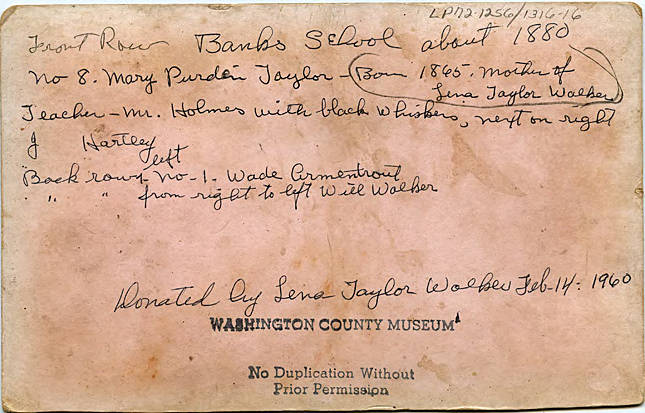 LP72-1256/1316-16
Front Row Banks School about 1880
No 8. Mary Purdin Taylor - Born 1865. Mother of
Lena Taylor Walker
Teacher - Mr. Holmes with black whiskers, next on right
J Hartley
left
Back row - No - 1 - Wade Armentrout
" " from right to left Will Walker
Donated by Lena Taylor Walker Feb - 14 - 1960
WASHINGTON COUNTY MUSEUM
No Duplication Without
Prior Permission